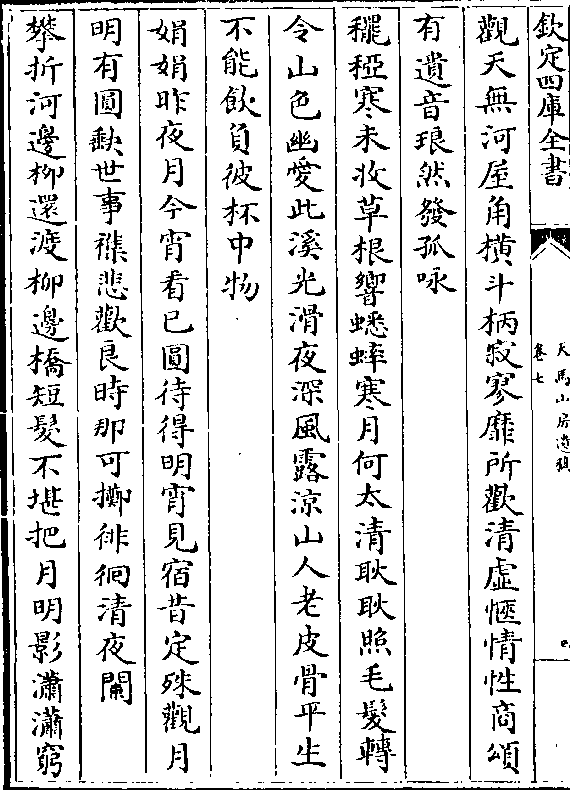 欽定四庫全書
天馬山房遺稿
卷七
觀天無河屋角橫斗柄寂寥靡所歡清虛愜情性商頌
有遺音琅然發孤咏
䆉稏寒未收草根響蟋蟀寒月何太清耿耿照毛髮轉
令山色幽愛此溪光滑夜深風露涼山人老皮骨平生
不能飲負彼杯中物
娟娟昨夜月今宵看已圓待得明宵見宿昔定殊觀月
明有圓缺世事襍悲歡良時那可擲徘徊清夜闌
攀折河邊柳還渡柳邊橋短髮不堪把月明影瀟瀟窮